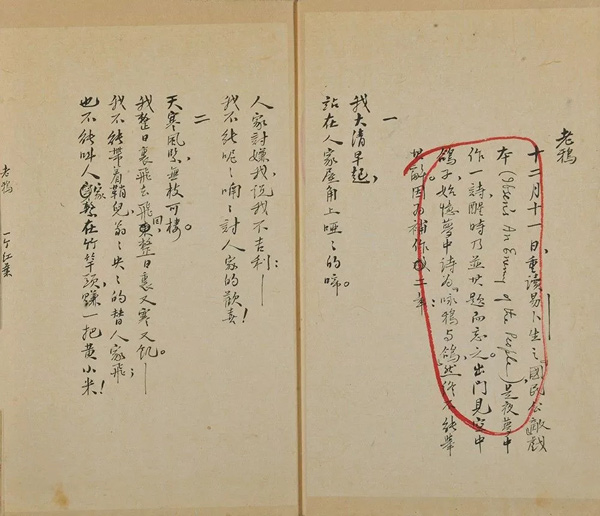 老鴉
十二月十一日，重讀易卜生之「國民公敵」戲
本(Ibsen's An Enemy of the People)，是夜夢中
作一詩，醒時乃並其題而忘之。出門見空中
鴿子，始憶夢中詩為「詠鴉與鴿」，然終不能舉
其詞，因為補作成二章：
一
我大清早起，
站在人家屋角上啞〻的啼。
人家討嫌我，說我不吉利：——
我不能呢〻喃〻討人家的歡喜！
二
天寒風緊，無枝可棲。
我整日裏飛去飛回，整日裏又寒又飢。——
我不能帶着鞘兒翁〻央〻的替人家飛；
也不能叫人家繫在竹竿頭，賺一把黃小米！
老鴉